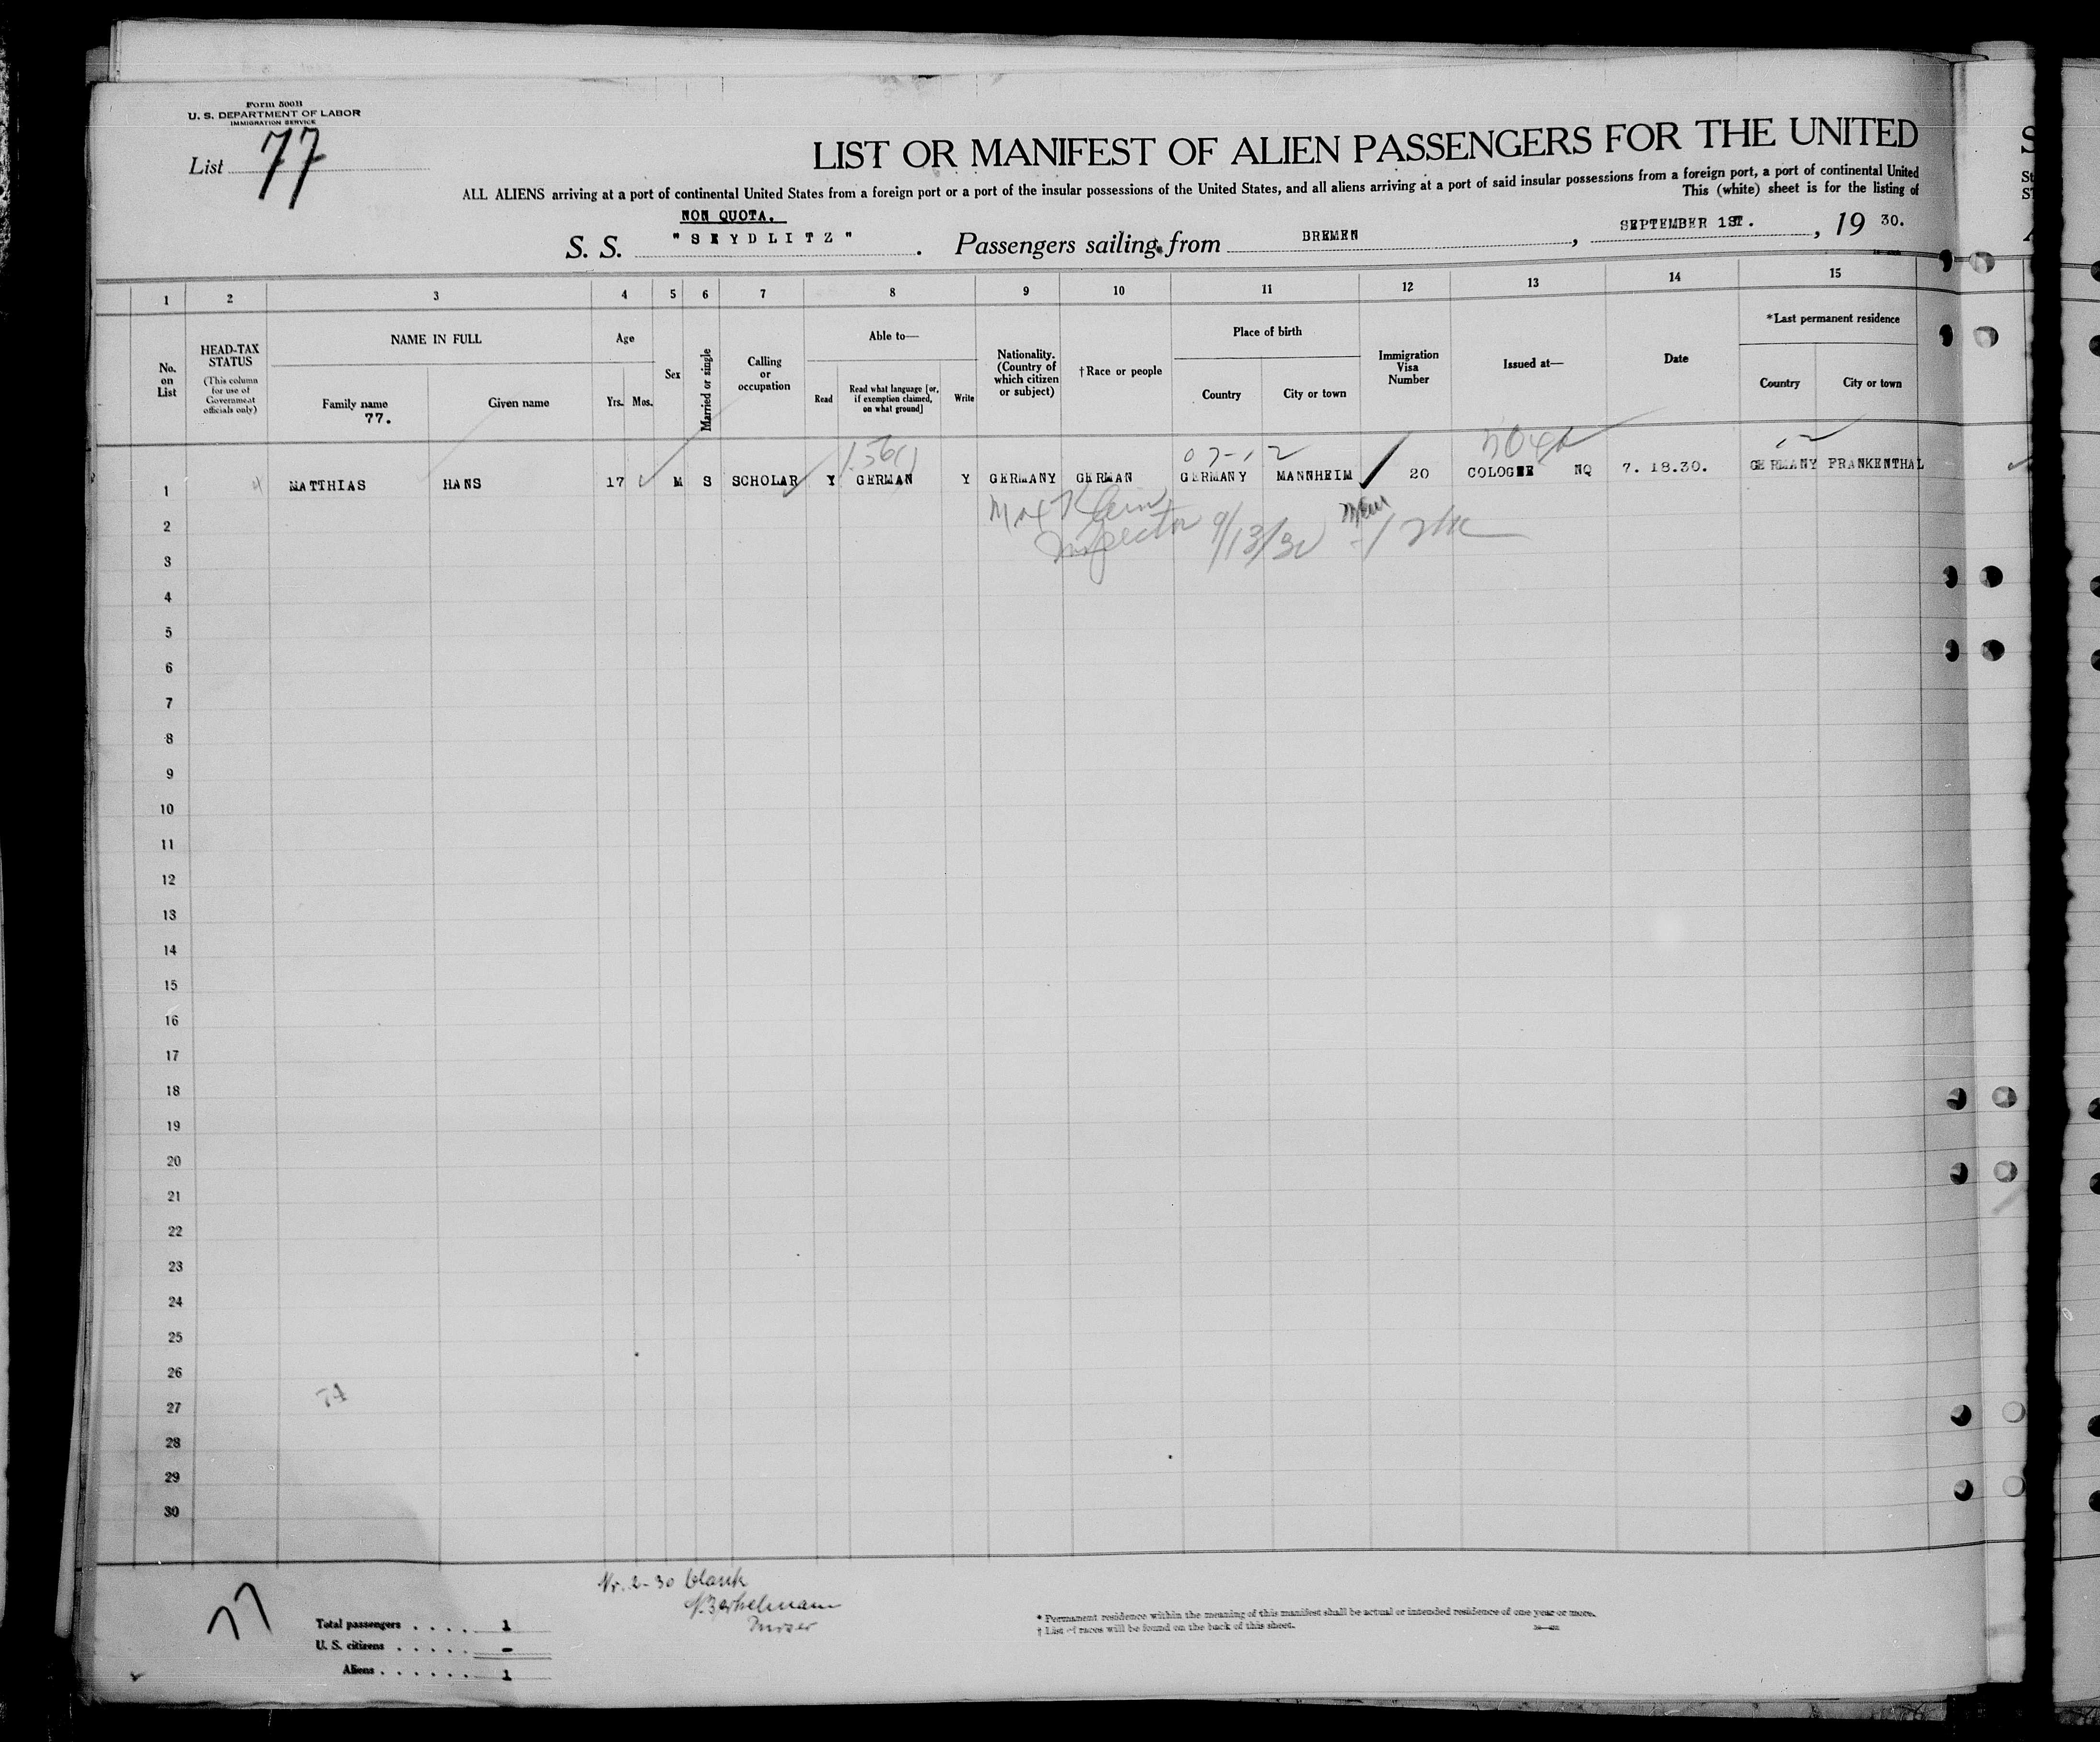 Form 500B
U. S. DEPARTMENT OF LABOR
IMMIGRATION SERVICE
List 77
LIST OR MANIFEST OF ALIEN PASSENGERS FOR THE UNITED
ALL ALIENS arriving at a port of continental United States from a foreign port or a port of the insular possessions of the United States, and all aliens arriving at a port of said insular possessions from a foreign port, a port of continental United
This (white) sheet is for the listing of
NON QUOTA.
S. S. "SEYDLITZ". Passengers sailing from BREMEN, SEPTEMBER 1ST., 19 30.
1 2 3 4 5 6 7 8 9 10 11 12 13 14 15
No. on List
HEAD-TAX STATUS
(This column for use of Government officials only)
NAME IN FULL
Family name
77.
Given name
Age
Yrs. Mos.
Sex
Married or single
Calling or occupation
Able to—
Read
Read what language [or, if exemption claimed, on what ground]
Write
Nationality. (Country of which citizen or subject)
†Race or people
Place of birth
Country
City or town
Immigration Visa Number
Issued at—
Date
*Last permanent residence
Country
City or town
1 MATTHIAS HANS 17 M S SCHOLAR Y GERMAN Y GERMANY GERMAN GERMANY MANNHEIM 20 COLOGNE NQ 7. 18.30. GERMANY FRANKENTHAL
Max Klein
Inspector 9/13/30
2
3
4
5
6
7
8
9
10
11
12
13
14
15
16
17
18
19
20
21
22
23
24
25
26
27
28
29
30
77
Nr. 2-30 blank
Total passengers . . . . 1
U. S. citizens . . . . . -
Aliens . . . . . . 1
* Permanent residence within the meaning of this manifest shall be actual or intended residence of one year or more.
† List of races will be found on the back of this sheet.